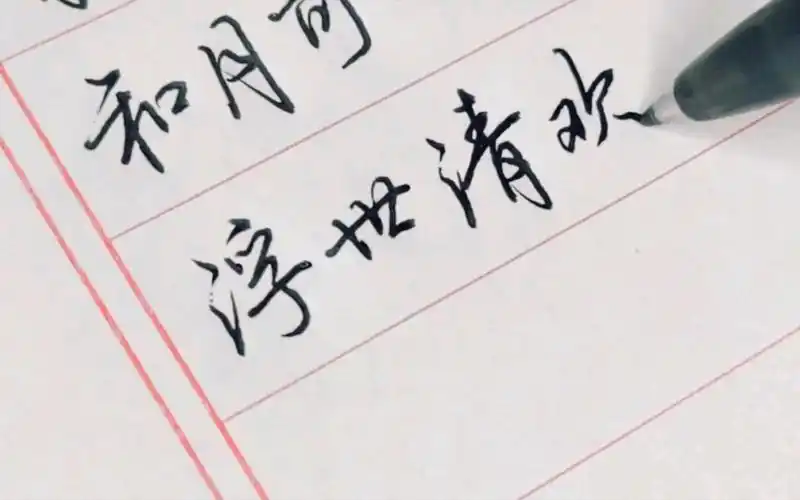 和月可
浮世清欢